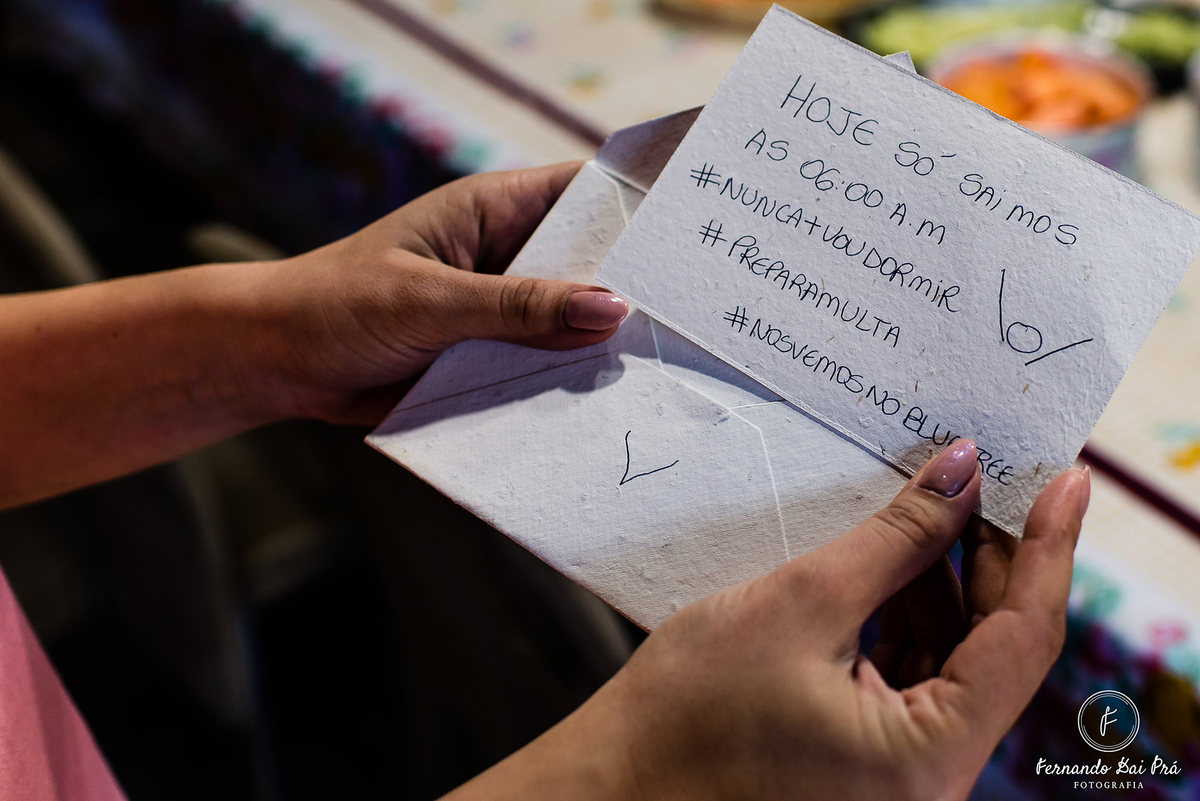 HOJE SÓ SAIMOS
AS 06:00 A.M
#NUNCA+VOUDORMIR
#PREPARAMULTA \o/
#NOSVEMOSNOBLUETREE
F
Fernando Dai Prá
FOTOGRAFIA